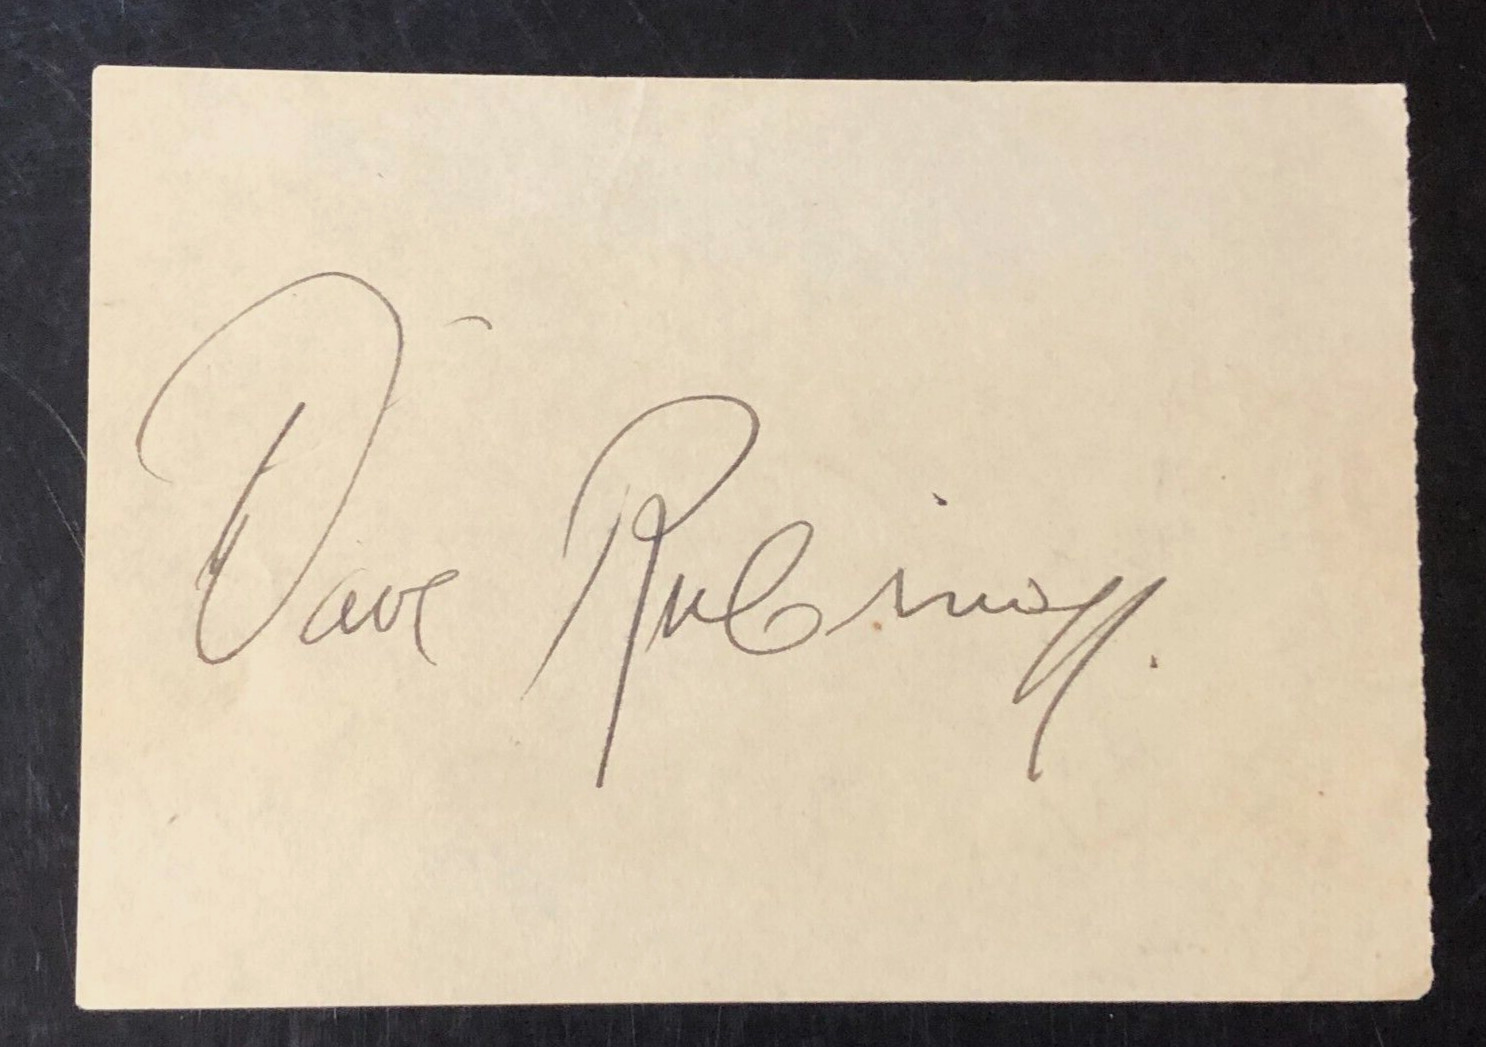 Dave Rubinoff.